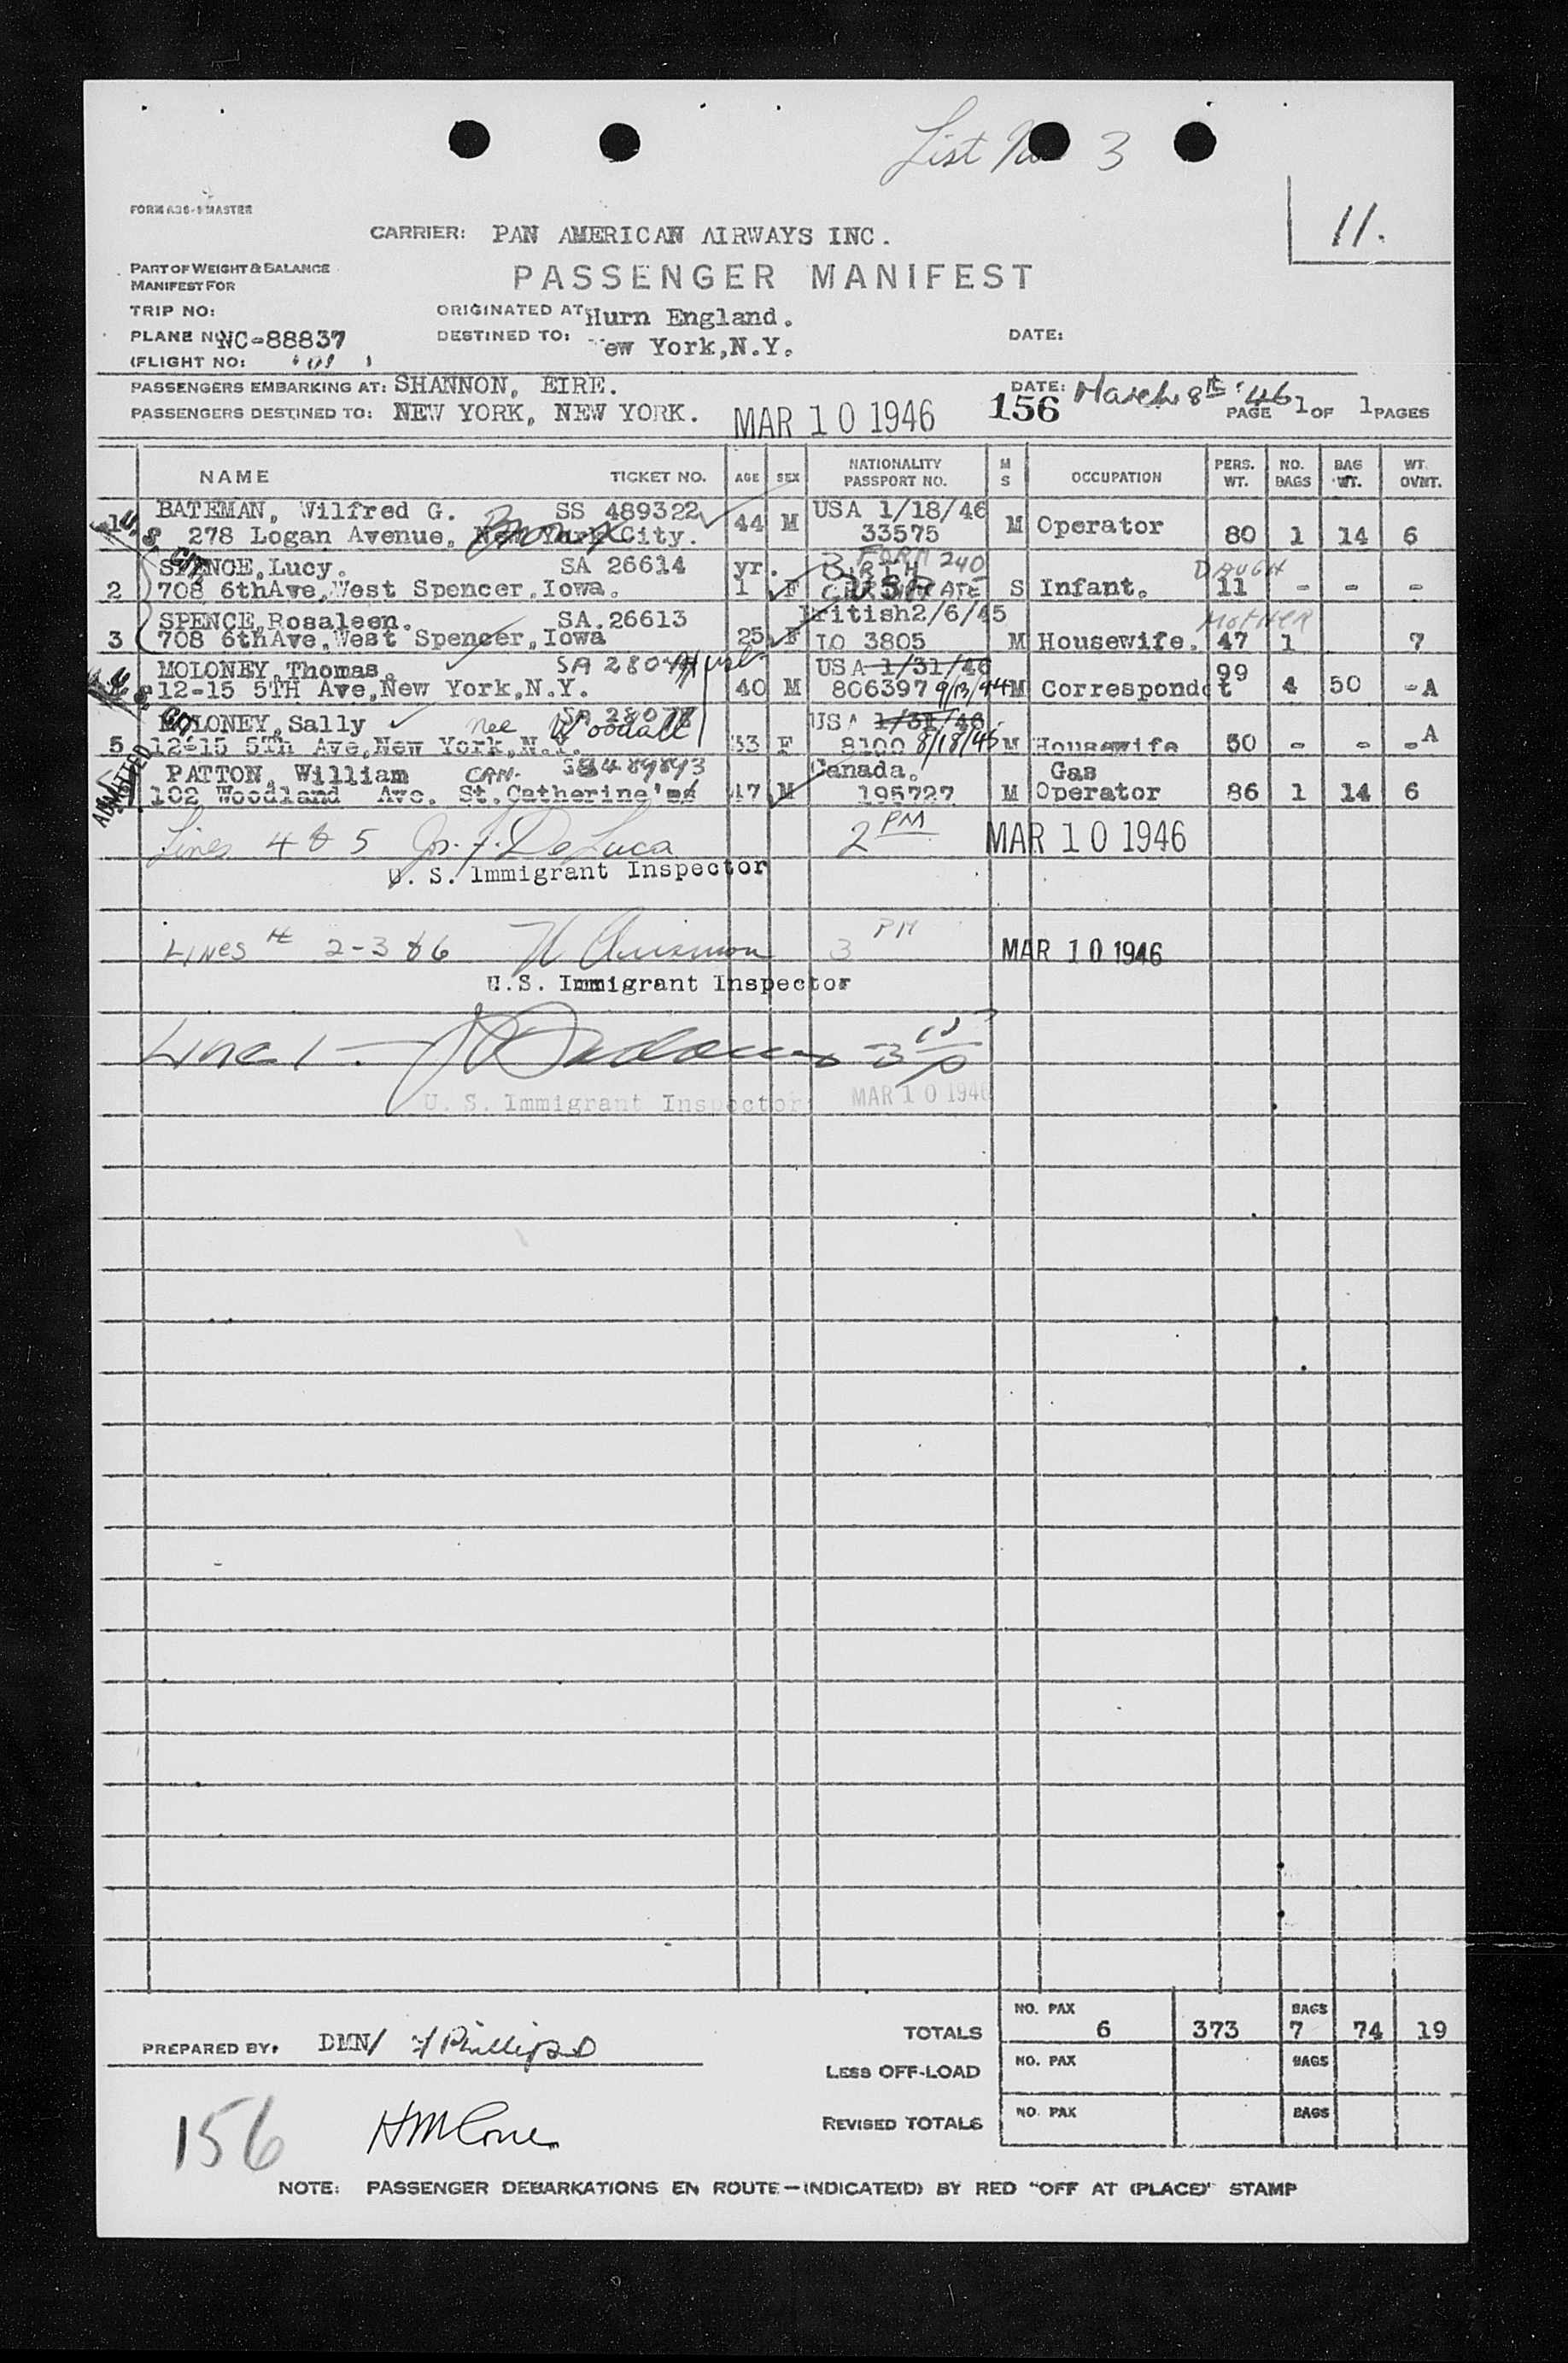 List No 3
11.
FORM 636-1 MASTER
CARRIER: PAN AMERICAN AIRWAYS INC.
PART OF WEIGHT & BALANCE
MANIFEST FOR
PASSENGER MANIFEST
TRIP NO:
ORIGINATED AT: Hurn England.
PLANE NO: NC-88837
DESTINED TO: New York,N.Y.
DATE:
(FLIGHT NO: 101 )
PASSENGERS EMBARKING AT: SHANNON, EIRE.
DATE: March 8th '46
PASSENGERS DESTINED TO: NEW YORK, NEW YORK. MAR 10 1946 156 PAGE 1 OF 1 PAGES
NAME TICKET NO. AGE SEX NATIONALITY PASSPORT NO. M S OCCUPATION PERS. WT. NO. BAGS BAG WT. WT. OVHT.
1 BATEMAN, Wilfred G. SS 489322 44 M USA 1/18/46 M Operator 80 1 14 6
278 Logan Avenue, New York City. Bronx 33575
U.S. CIT
2 SPENCE,Lucy. SA 26614 yr. 1 F BIRTH CERTIFICATE FORM 240 USA S Infant. DAUGH 11 - - -
708 6thAve,West Spencer,Iowa.
3 SPENCE,Rosaleen. SA.26613 25 F British2/6/45 M Housewife. MOTHER 47 1 7
708 6thAve,West Spencer,Iowa LO 3805
MOLONEY,Thomas. SA 28077 40 M USA 1/31/46 M Correspondt 99 4 50 -A
12-15 5TH Ave,New York,N.Y. 806397 9/13/44
U.S. CIT
5 MOLONEY,Sally nee Woodall SA 28078 33 F USA 1/31/46 M Housewife 50 - - -A
12-15 5Th Ave,New York,N.Y. 8100 8/18/45
ADMITTED
PATTON, William CAN. SS489893 47 M Canada. M Gas Operator 86 1 14 6
102 Woodland Ave. St.Catherine's 195727
Lines 4 & 5 Jos. J. De Luca 2 PM MAR 10 1946
U. S. Immigrant Inspector
LINES # 2-3 & 6 3 PM MAR 10 1946
U.S. Immigrant Inspector
Line 1 -
U. S. Immigrant Inspector MAR 10 1946
PREPARED BY: DMN/ Phillips
TOTALS NO. PAX 6 373 BAGS 7 74 19
LESS OFF-LOAD NO. PAX BAGS
REVISED TOTALS NO. PAX BAGS
156
NOTE: PASSENGER DEBARKATIONS EN ROUTE—INDICATE(D) BY RED "OFF AT (PLACE)" STAMP